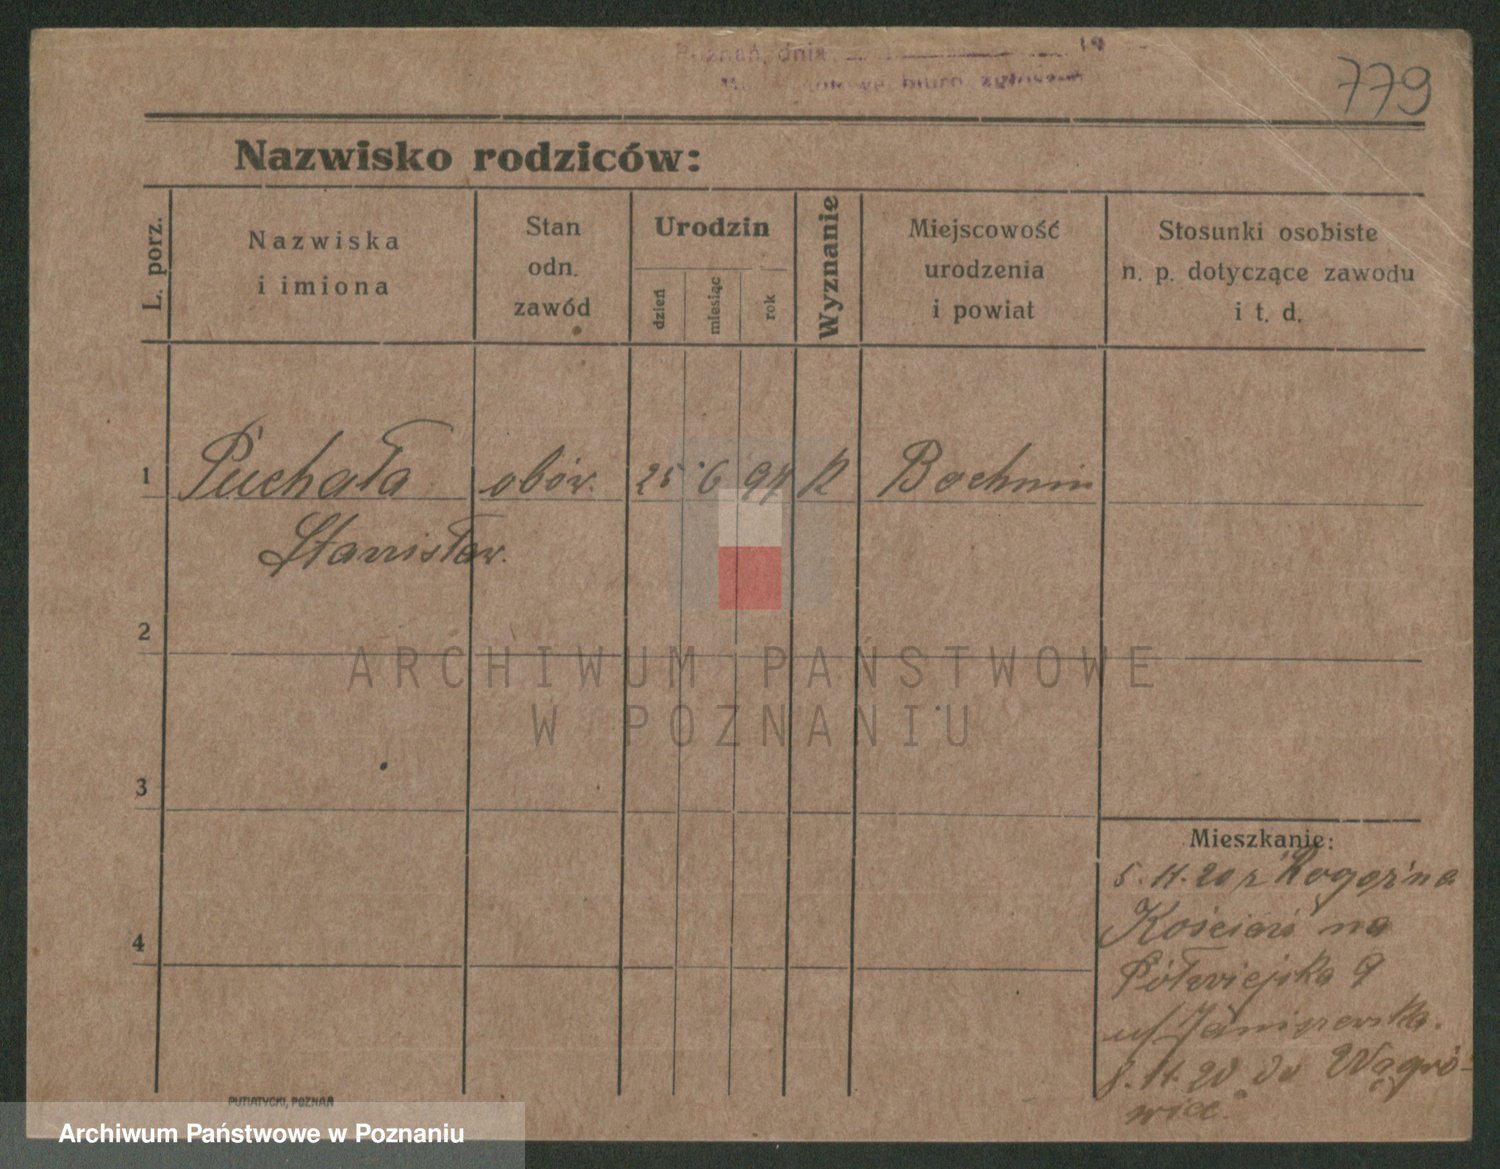 Poznań, dnia 19
biuro zgłoszeń
779
Nazwisko rodziców:
L. porz.
Nazwiska
i imiona
Stan
odn.
zawód
Urodzin
dzień
miesiąc
rok
Wyznanie
Miejscowość
urodzenia
i powiat
Stosunki osobiste
n. p. dotyczące zawodu
i t. d.
1 Puchała obów. 25 6 97 R Bochnin
Stanisław.
2
ARCHIWUM PAŃSTWOWE
W POZNANIU
3
Mieszkanie:
5.11.20 z Rogoźna
Kościań na
Półwiejska 9
u/ Janiszewska.
8.11.20 do Wągró-
wiec.
4
PUTIATYCKI, POZNAŃ
Archiwum Państwowe w Poznaniu